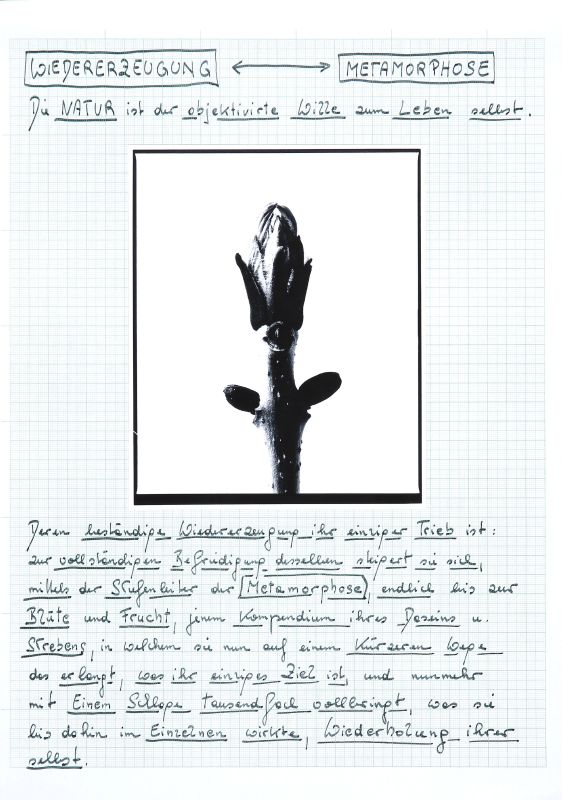 WIEDERERZEUGUNG ⟷ METAMORPHOSE
Die NATUR ist der objektivirte Wille zum Leben selbst.
Deren beständige Wiedererzeugung ihr einziger Trieb ist:
zur vollständigen Befriedigung desselben steigert sie sich,
mittels der Stufenleiter der Metamorphose, endlich bis zur
Blüte und Frucht, jenem Kompendium ihres Daseins u.
Strebens, in welchem sie nun auf einem Kürzeren Wege
das erlangt, was ihr einziges Ziel ist, und nunmehr
mit Einem Schlage tausendfach vollbringt, was sie
bis dahin im Einzelnen wirkte, Wiederholung ihrer
selbst.